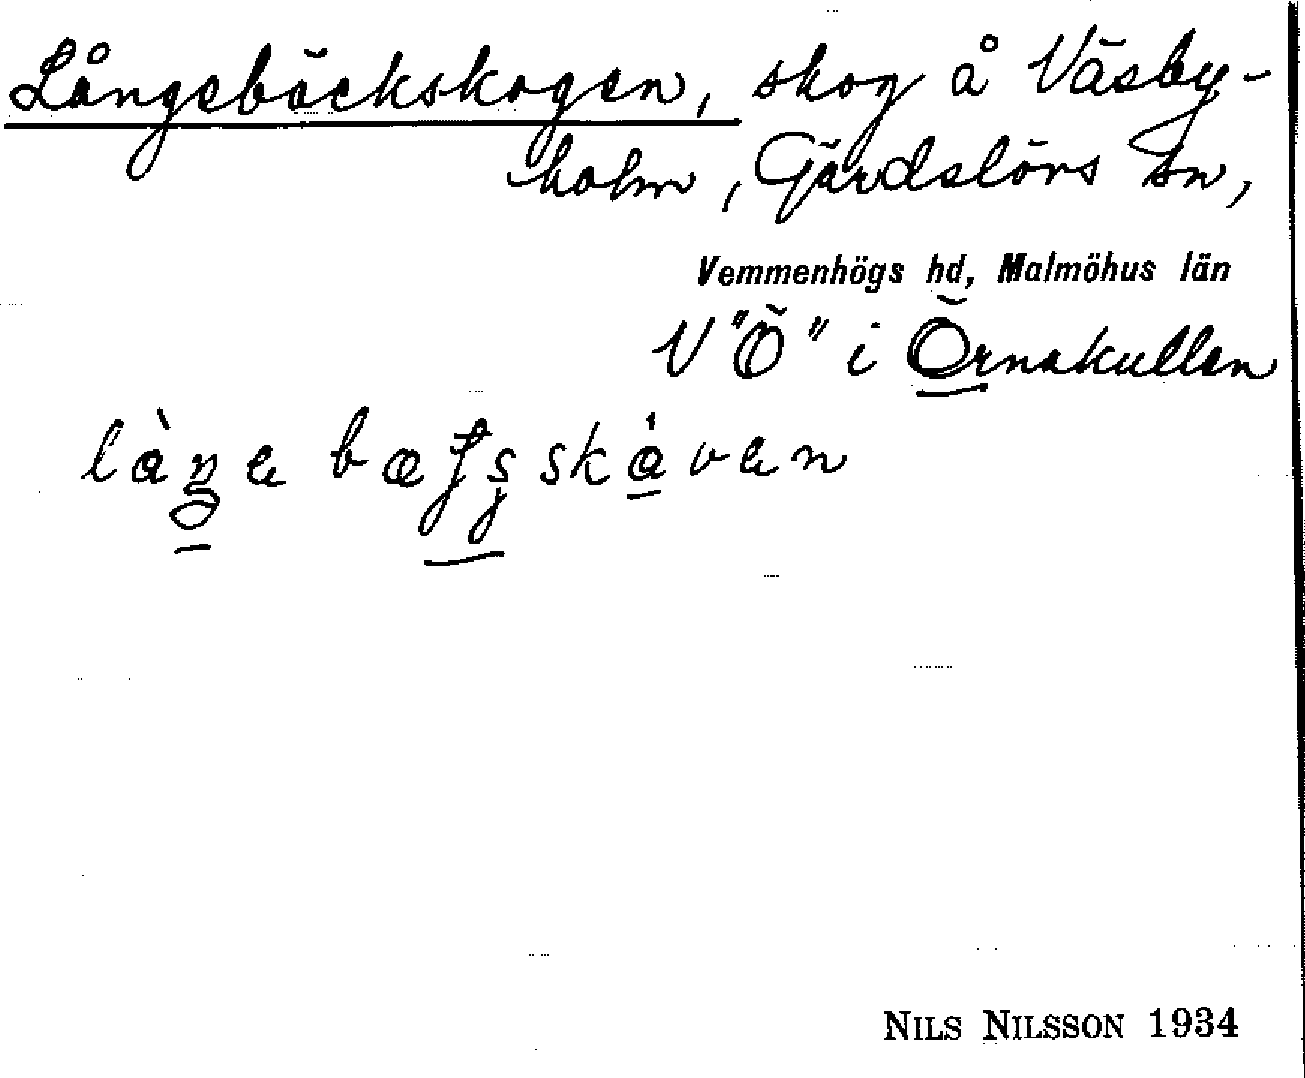 Långebäckskogen, skog å Väsby-
holm, Gärdslövs sn,
Vemmenhögs hd, Malmöhus län
V "Ö" i Örnakullen
NILS NILSSON 1934